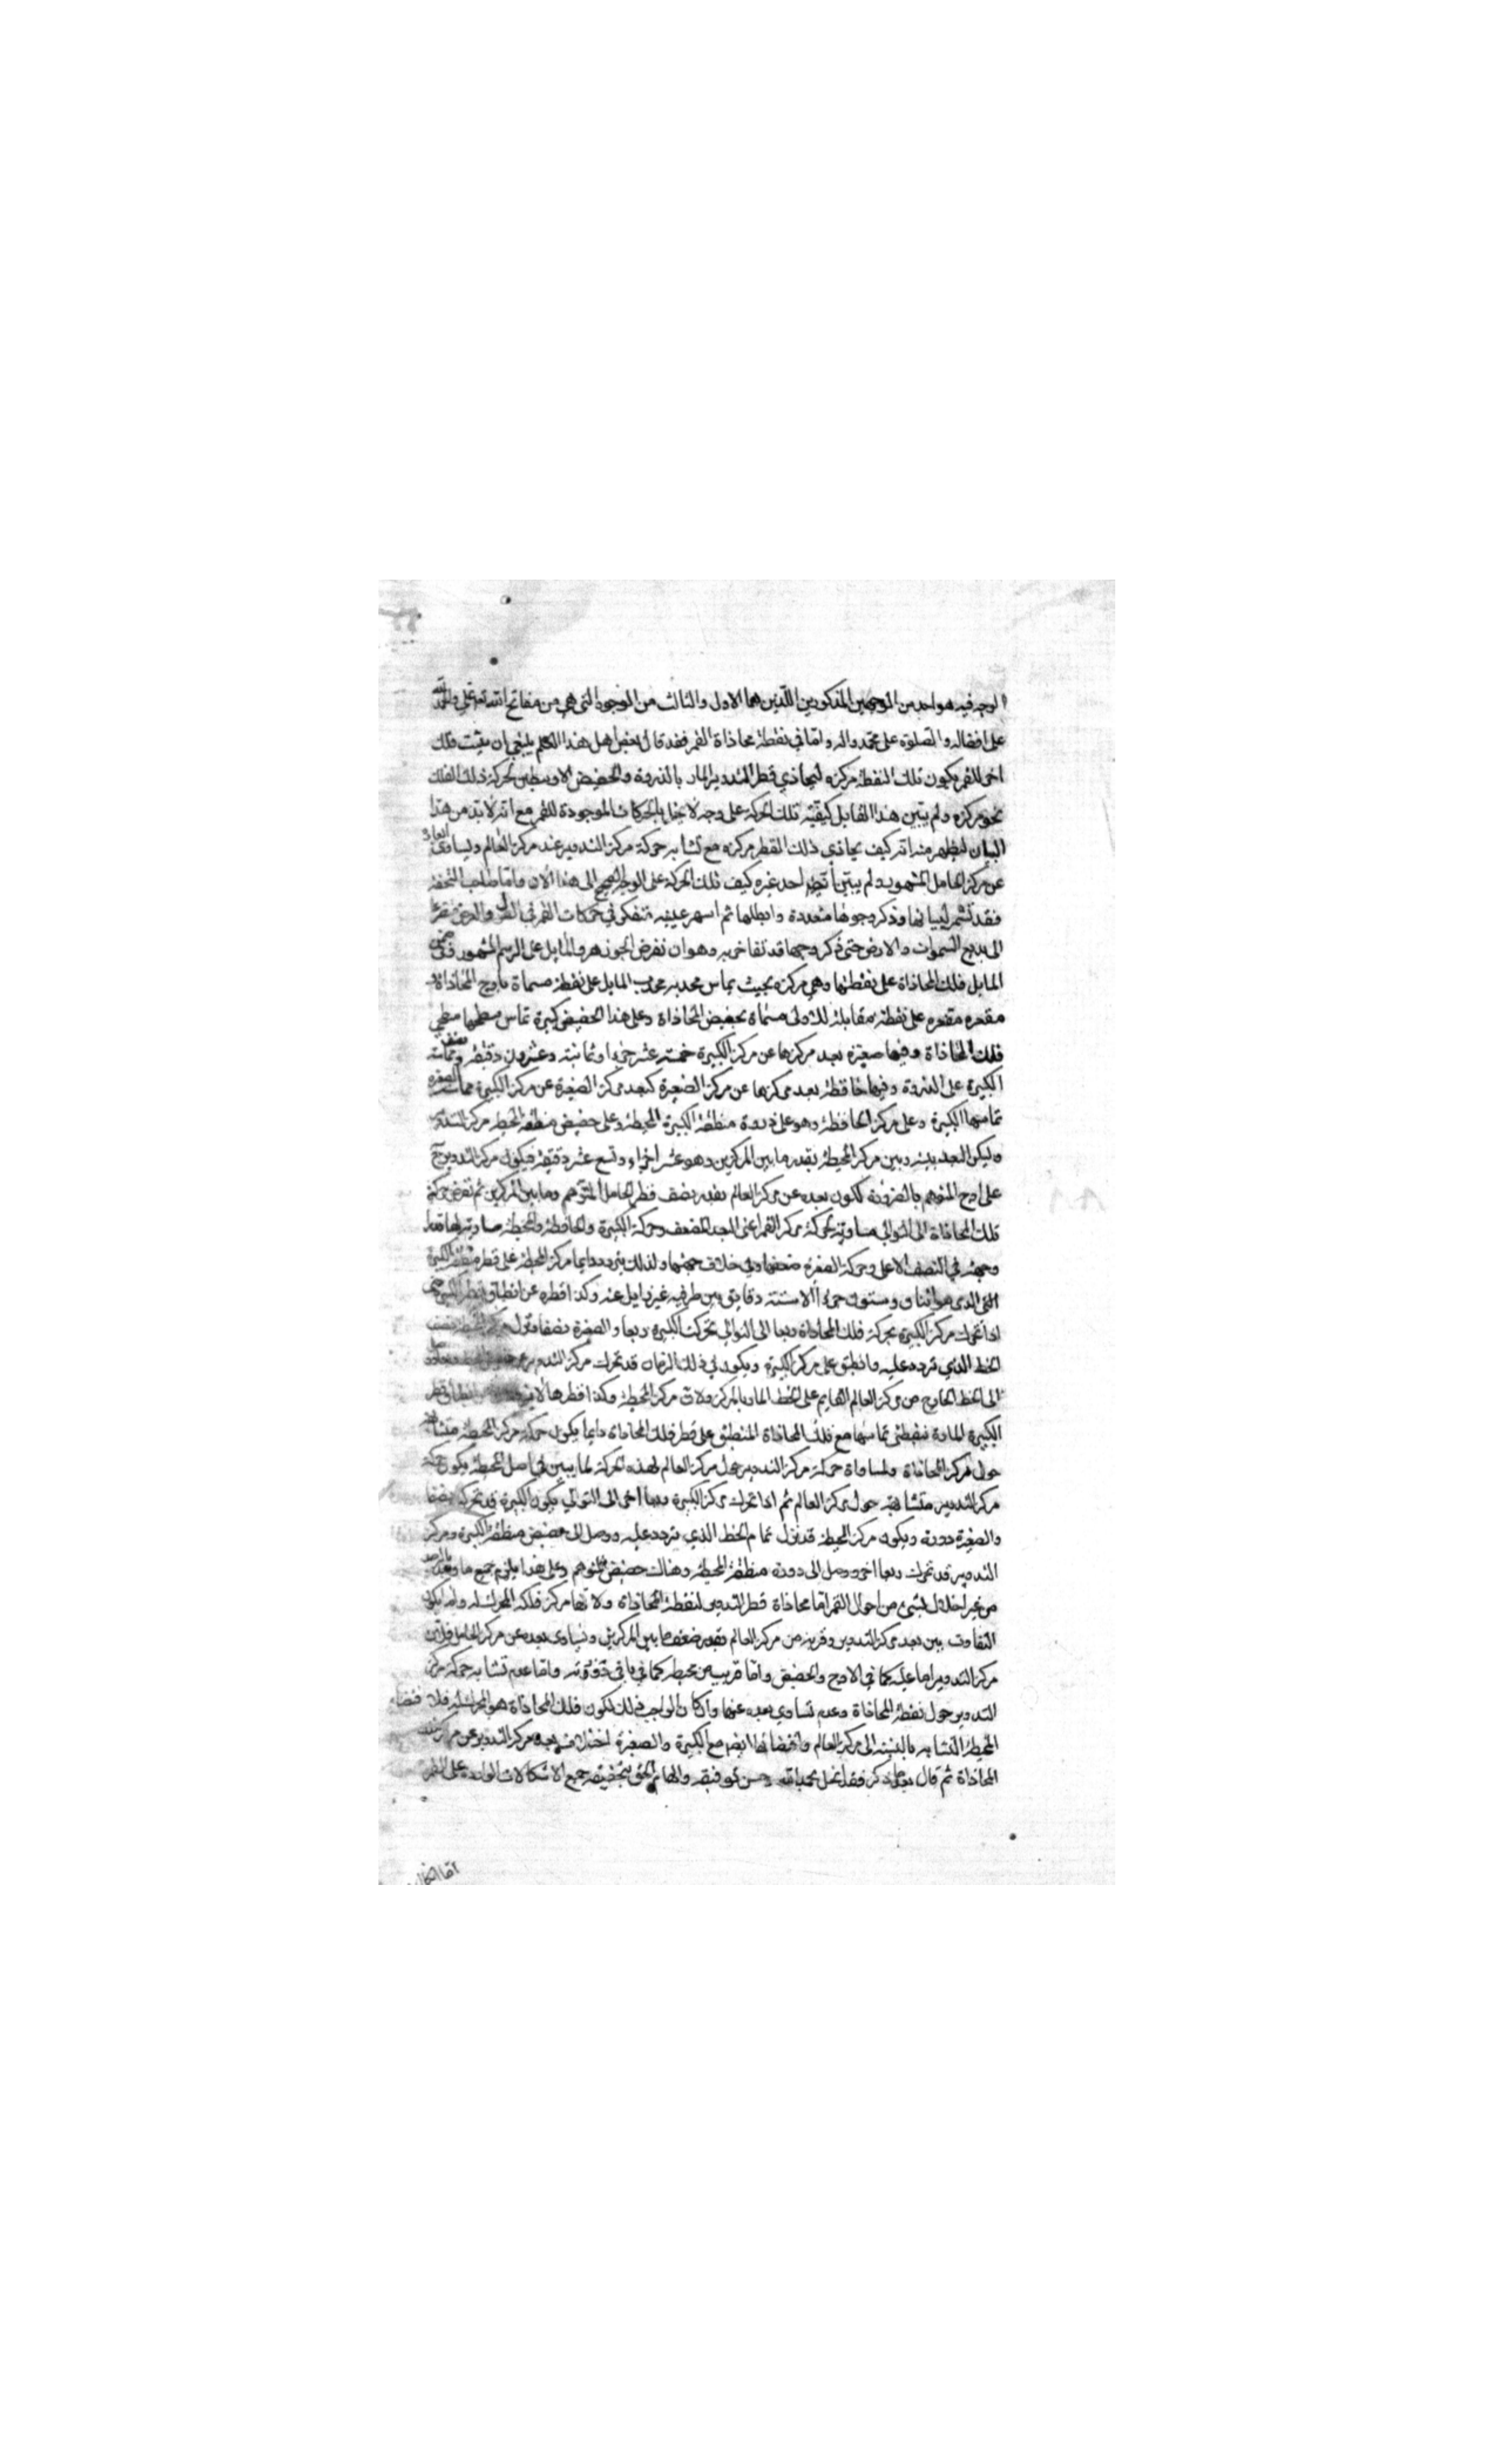 الوجه فيه هو احد من الوجهين المذكورين اللذين هما الاول والثالث من الوجوه التي هي من مفاتح الله
على افضاله والصلوة على محمد واله واما في نقطة محاذاة القمر فقد قال بعض اهل هذا العلم ينبغي ان يثبت فلك
اخر للقمر يكون تلك النقطة مركزه ليحاذي قطر التدوير المار بالذروة والحضيض الاوسطين لحركة ذلك الفلك
نحو مركزه ولم يتبين هذا القايل كيفية تلك الحركة على وجه لا يخل بالحركات الموجودة للقمر مع انه لابد من هذا
البيان ليظهر منه انه كيف يحاذي ذلك القطر مركزه مع تشابه حركة مركز التدوير عند مركز العالم وتساوى ابعاده
عن مركز الحامل المشهور ولم يبين احد غيره كيف تلك الحركة على الوجه الصحيح الى هذا الان واما صاحب التحفة
فقد تشمر لبيانها وذكر وجوها متعددة وابطلها ثم اسهر عينيه بتفكر في حركات القمر في
الى بديع السموات والارض حتى ذكر وجها قد تفاخر به وهو ان نفرض الجوزهر والمايل على الرسم المشهور وفي
المايل فلك المحاذاة على نقطتها وهي مركزه بحيث يماس محدبه محدب المايل على نقطة مسماة باوج المحاذاة
مقعره مقعره على نقطة مقابلة للاولى مسماة بحضيض المحاذاة وعلى هذا الحضيض كبيرة تماس سطحها سطحي
فلك المحاذاة وفيها صغيرة بعد مركزها عن مركز الكبيرة خمسة عشر جزءا وثمانية وعشرون دقيقة
الكبيرة على الذروة وفيها حافظة بعد مركزها عن مركز الصغيرة كبعد مركز الصغيرة عن مركز الكبيرة
تماسها الكبيرة وعلى مركز الحافظة وهو على ذروة منطقة الكبيرة المحيطة وعلى حضيض منطقة المحيطة مركز التدوير
وليكن البعد بينه وبين مركز المحيطة بقدر ما بين المركزين وهو عشر اجزاء وتسع عشر دقيقة فيكون مركز التدوير
على اوج المتوهم بالضرورة لكون بعده عن مركز العالم بقدر نصف قطر الحامل المتوهم وما بين المركزين ثم نفرض حركة
فلك المحاذاة الى التوالي مساوية لحركة مركز القمر اعني البعد المضعف وحركة الكبيرة والحافظة والمحيطة مساوية لها
وجهة في النصف الاعلى وحركة الصغيرة ضعفها وفي خلاف جهتها ولذلك يتردد دايما مركز المحيطة على قطر منطقة الكبيرة
الذى هو اثنان وستون جزءا الا ستة دقايق بين طرفيه غير زايل عنه وكذا قطره عن انطباق قطر الكبيرة
اذا تحرك مركز الكبيرة بحركة فلك المحاذاة ربعا الى التوالي تحركت الكبيرة ربعا والصغيرة نصفا ونزل مركز المحيطة نصف
الخط الذي تردد عليه وانطبق على مركز الكبيرة ويكون في ذلك الزمان قد تحرك مركز التدوير
الى الخط الخارج من مركز العالم القايم على الخط المار بالمركز ولان مركز المحيطة وكذا قطرها لا
الكبيرة المارة بنقطتي تماسها مع فلك المحاذاة المنطبق على قطر فلك المحاذاة دايما يكون حركة مركز المحيطة متشابهة
حول مركز المحاذاة ولمساواة حركة مركز التدوير حول مركز العالم لهذه الحركة لما يبين في اصل المحيطة يكون حركة
مركز التدوير متشابهة حول مركز العالم ثم اذا تحرك مركز الكبيرة ربعا اخر الى التوالي يكون الكبيرة قد تحركت نصفا
والصغيرة دورة ويكون مركز المحيطة قد نزل تمام الخط الذي تردد عليه ووصل الى حضيض منطقة الكبيرة ومركز
التدوير قد تحرك ربعا اخر ووصل الى ذروة منطقة المحيطة وهناك حضيض المتوهم وعلى هذا يلزم جميع ما
من غير اخلال بشيء من احوال القمر اما محاذاة قطر التدوير لنقطة المحاذاة فلانها مركز فلكه المحرك له واما كون
التفاوت بين بعد مركز التدوير وقربه من مركز العالم بقدر ضعف ما بين المركزين وتساوى بعده عن مركز الحامل فلان
مركز التدوير اما عليه كما في الاوج والحضيض واما قريب من محيطه كما في باقي دورته واما عدم تشابه حركة مركز
التدوير حول نقطة المحاذاة وعدم تساوي بعده عنها وان كان الواجب ذلك لكون فلك المحاذاة هو المحرك له فلاقتضاء
المحيطة التشابه بالنسبة الى مركز العالم واقتضائها ايضا مع الكبيرة والصغيرة اختلاف بعد مركز التدوير عن مركز
المحاذاة ثم قال بعد ما ذكر فقد انحل بحمد الله وحسن توفيقه والهام الحق بتحقيقه جميع الاشكالات الواردة على القمر